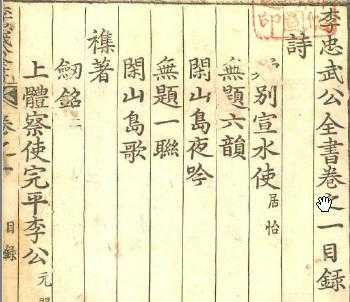 李忠武公全書卷之一目錄
詩
別宣水使居怡
無題六韻
閑山島夜吟
無題一聯
閑山島歌
襍著
劒銘二
上體察使完平李公元
卷之一
目錄